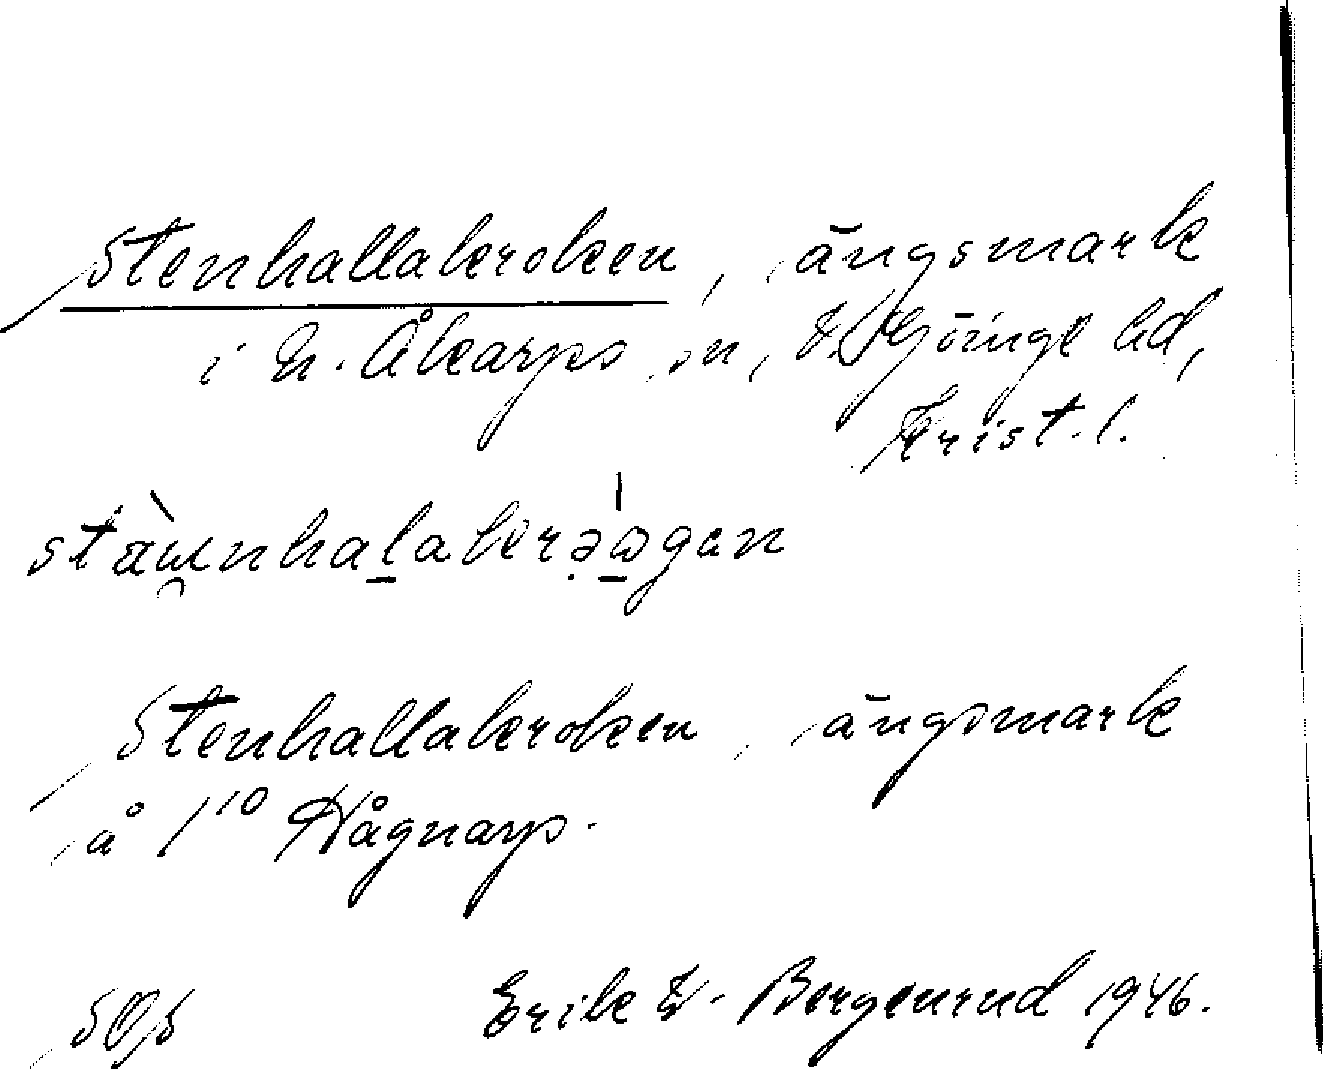 Stenhallakroken, ängsmark
i N. Åkarps sn, V. Göinge hd,
Krist. l.
Stenhallakroken, ängsmark
å 1¹⁰ Hågnarp.
Erik W. Bergenrud 1946.